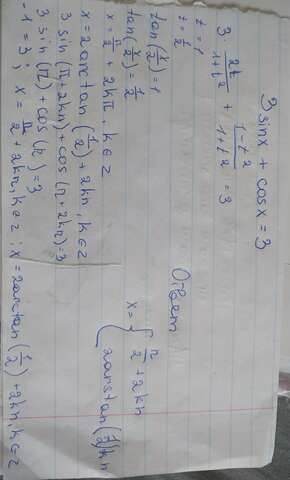 3 sin x + cos x = 3
3 2t/1+t² + 1-t²/1+t² = 3
t = 1
t = 1/2
tan(x/2) = 1
tan(x/2) = 1/2
x = π/2 + 2kπ, k ∈ z
x = 2arctan(1/2) + 2kπ, k ∈ z
3 sin(π + 2kπ) + cos(π + 2kπ) = 3
3 sin(π) + cos(π) = 3
-1 = 3; x = π/2 + 2kπ, k ∈ z; x = 2arctan(1/2) + 2kπ, k ∈ z
Ответ
x = { π/2 + 2kπ
2arctan(1/2) kπ